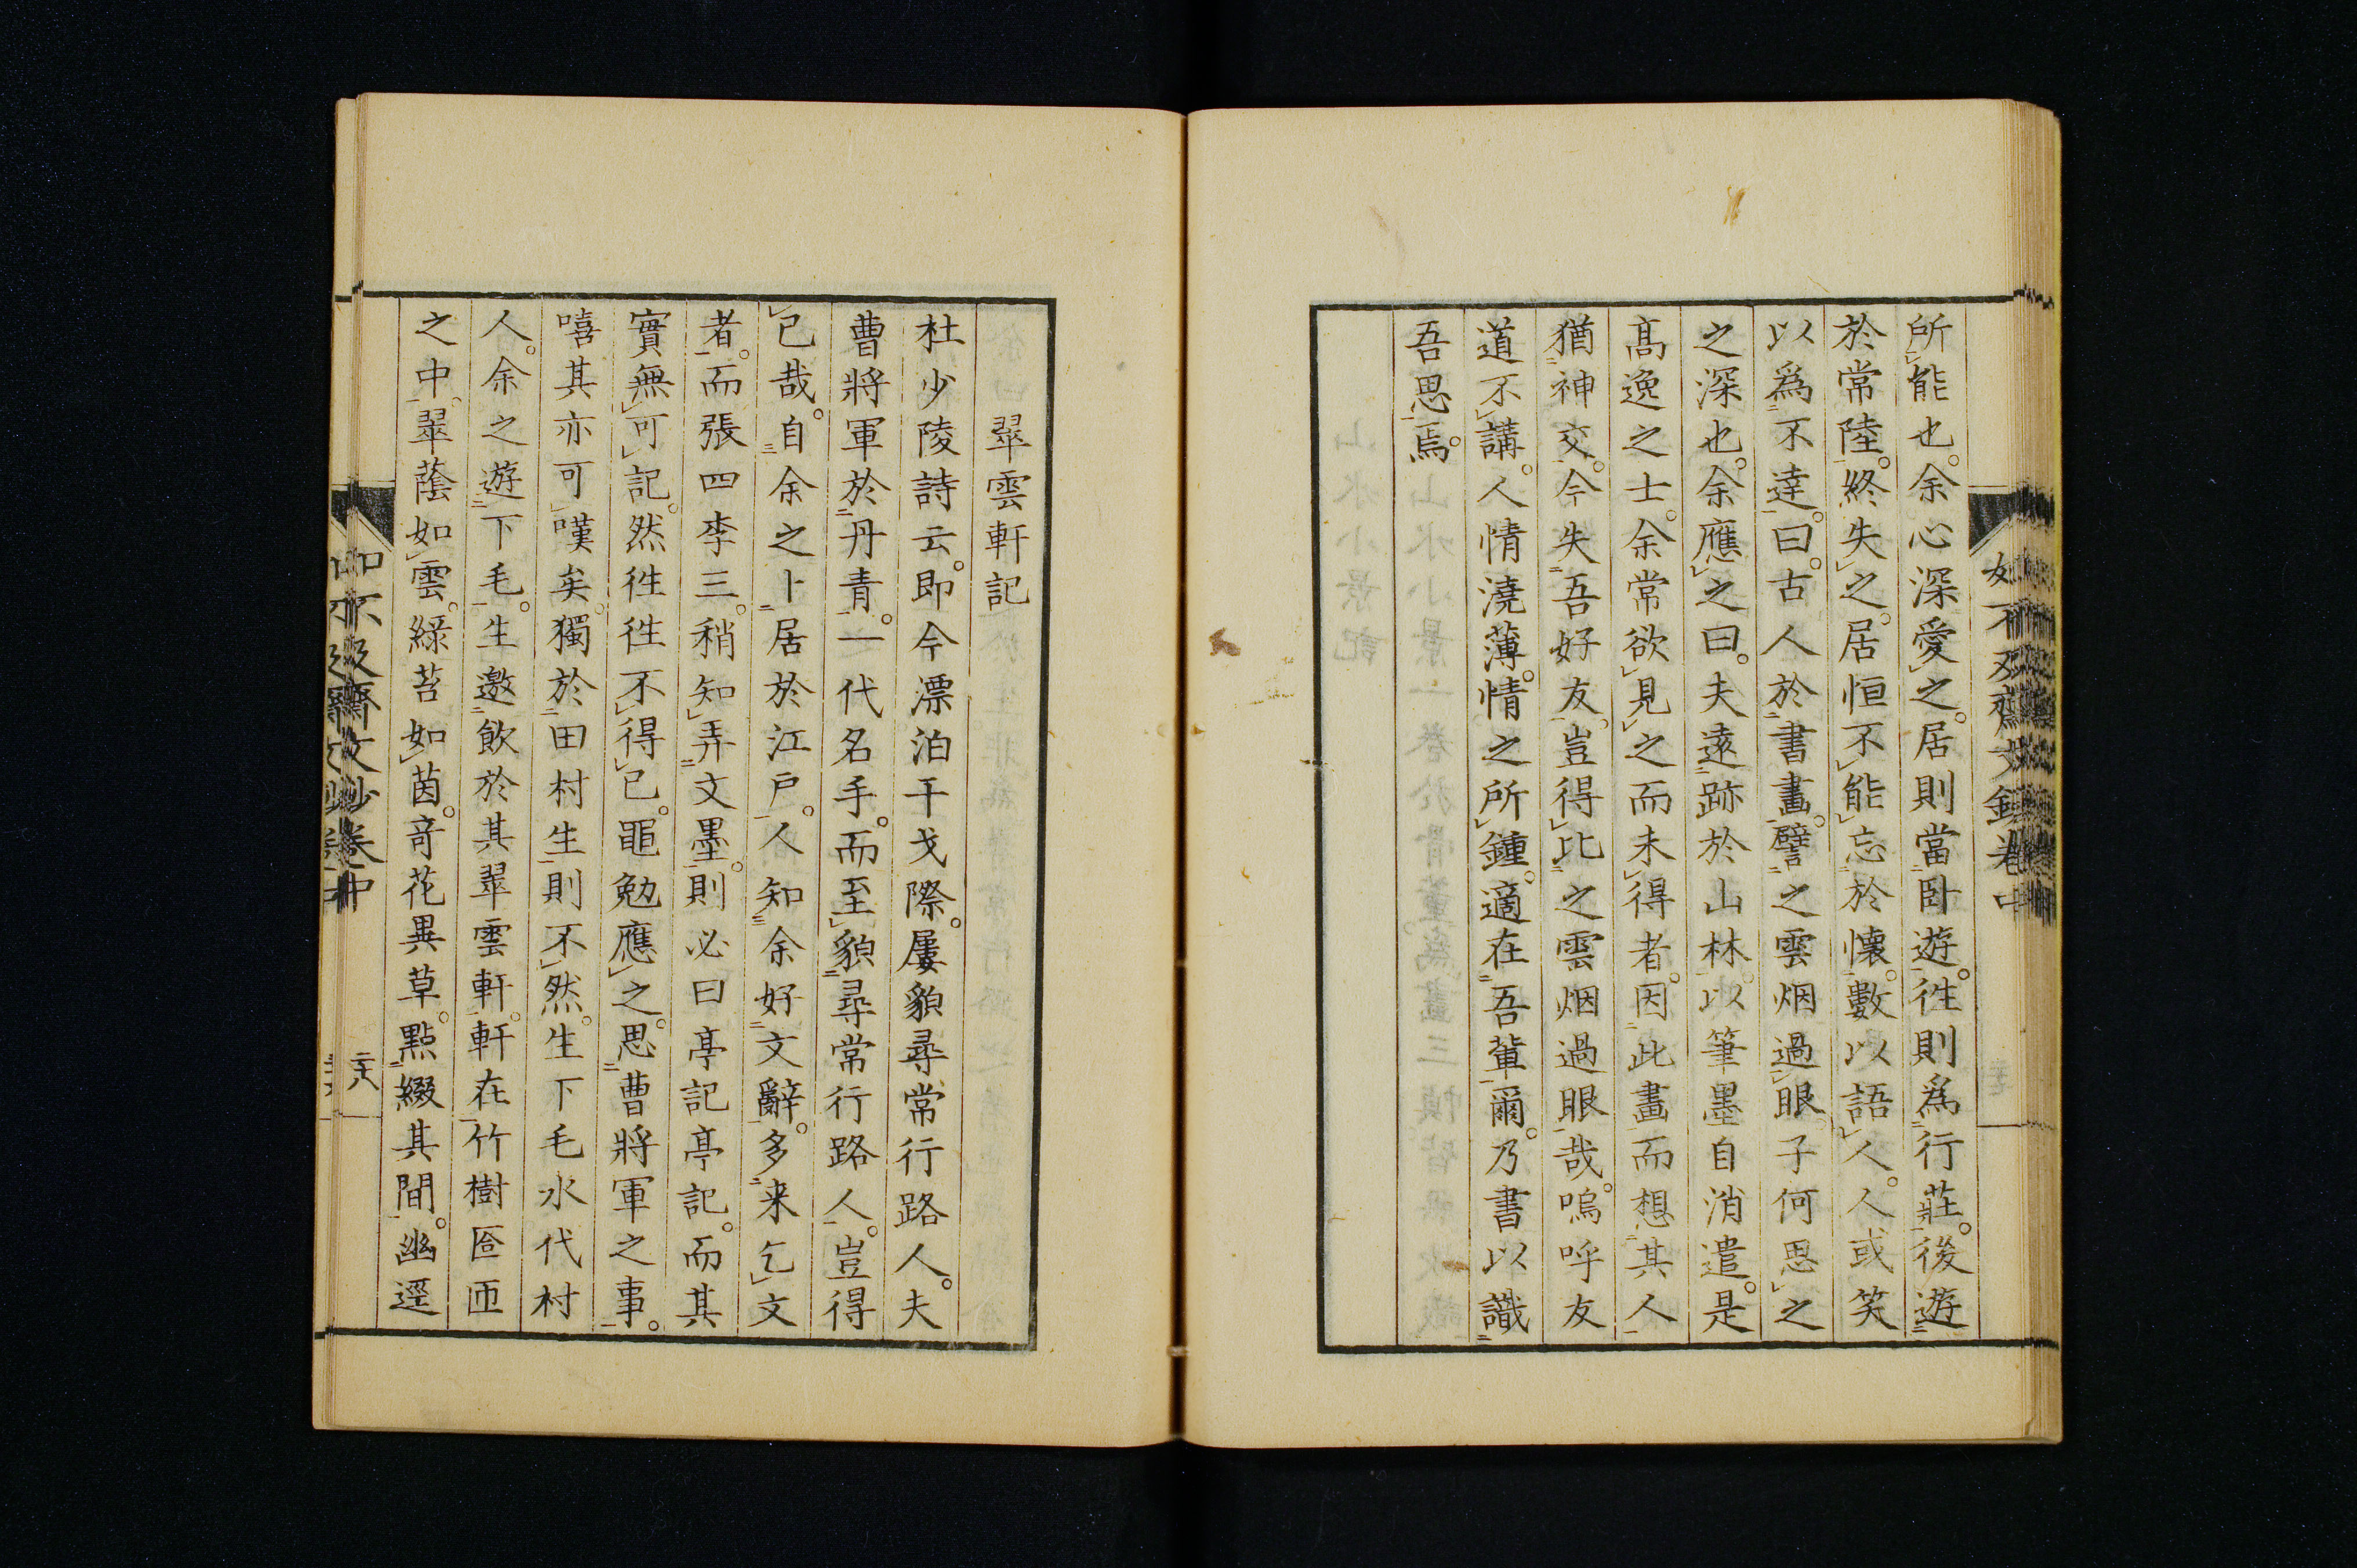 所能也。余心深愛之。居則當臥遊。往則爲行莊。後遊
於常陸。終失之。居恒不能忘於懷。數以語人。人或笑
以爲不達。曰。古人於書畫。譬之雲烟過眼。子何思之
之深也。余應之曰。夫遠跡於山林。以筆墨自消遣。是
高逸之士。余常欲見之而未得者。因此畫而想其人
猶神交。今失吾好友。豈得比之雲烟過眼哉。嗚呼友
道不講。人情澆薄。情之所鍾。適在吾輩爾。乃書以識
吾思焉。
翠雲軒記
杜少陵詩云。即今漂泊干戈際。屢貌尋常行路人。夫
曹將軍於丹青。一代名手。而至貌尋常行路人。豈得
已哉。自余之卜居於江戶。人知余好文辭。多来乞文
者。而張四李三。稍知弄文墨。則必曰亭記亭記。而其
實無可記。然徃徃不得已。黽勉應之。思曹將軍之事。
嘻其亦可嘆矣。獨於田村生則不然。生下毛水代村
人。余之遊下毛。生邀飲於其翠雲軒。軒在竹樹匼匝
之中。翠蔭如雲。綠苔如茵。奇花異草。點綴其間。幽逕
如不及齋文鈔卷中
如不及齋文鈔卷中
二十八